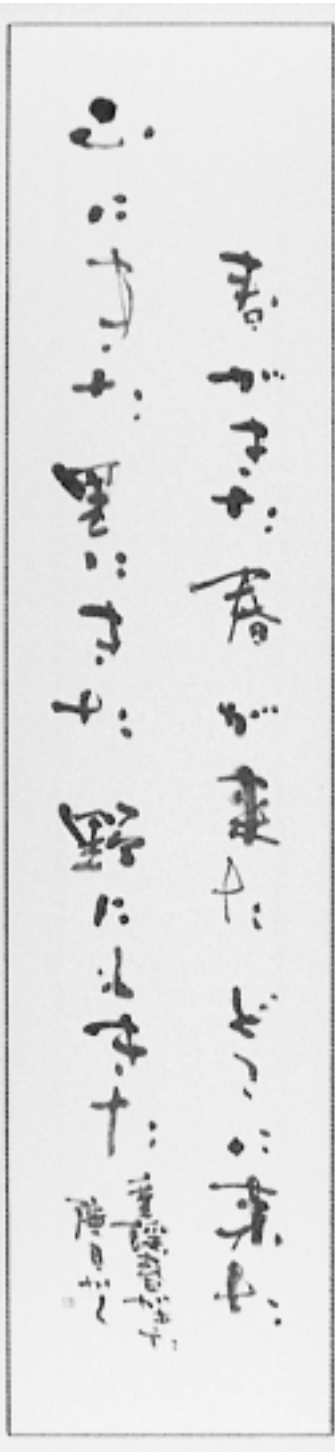 春がきた 春が来た どこに来た
山にきた 里にきた 野にもきた